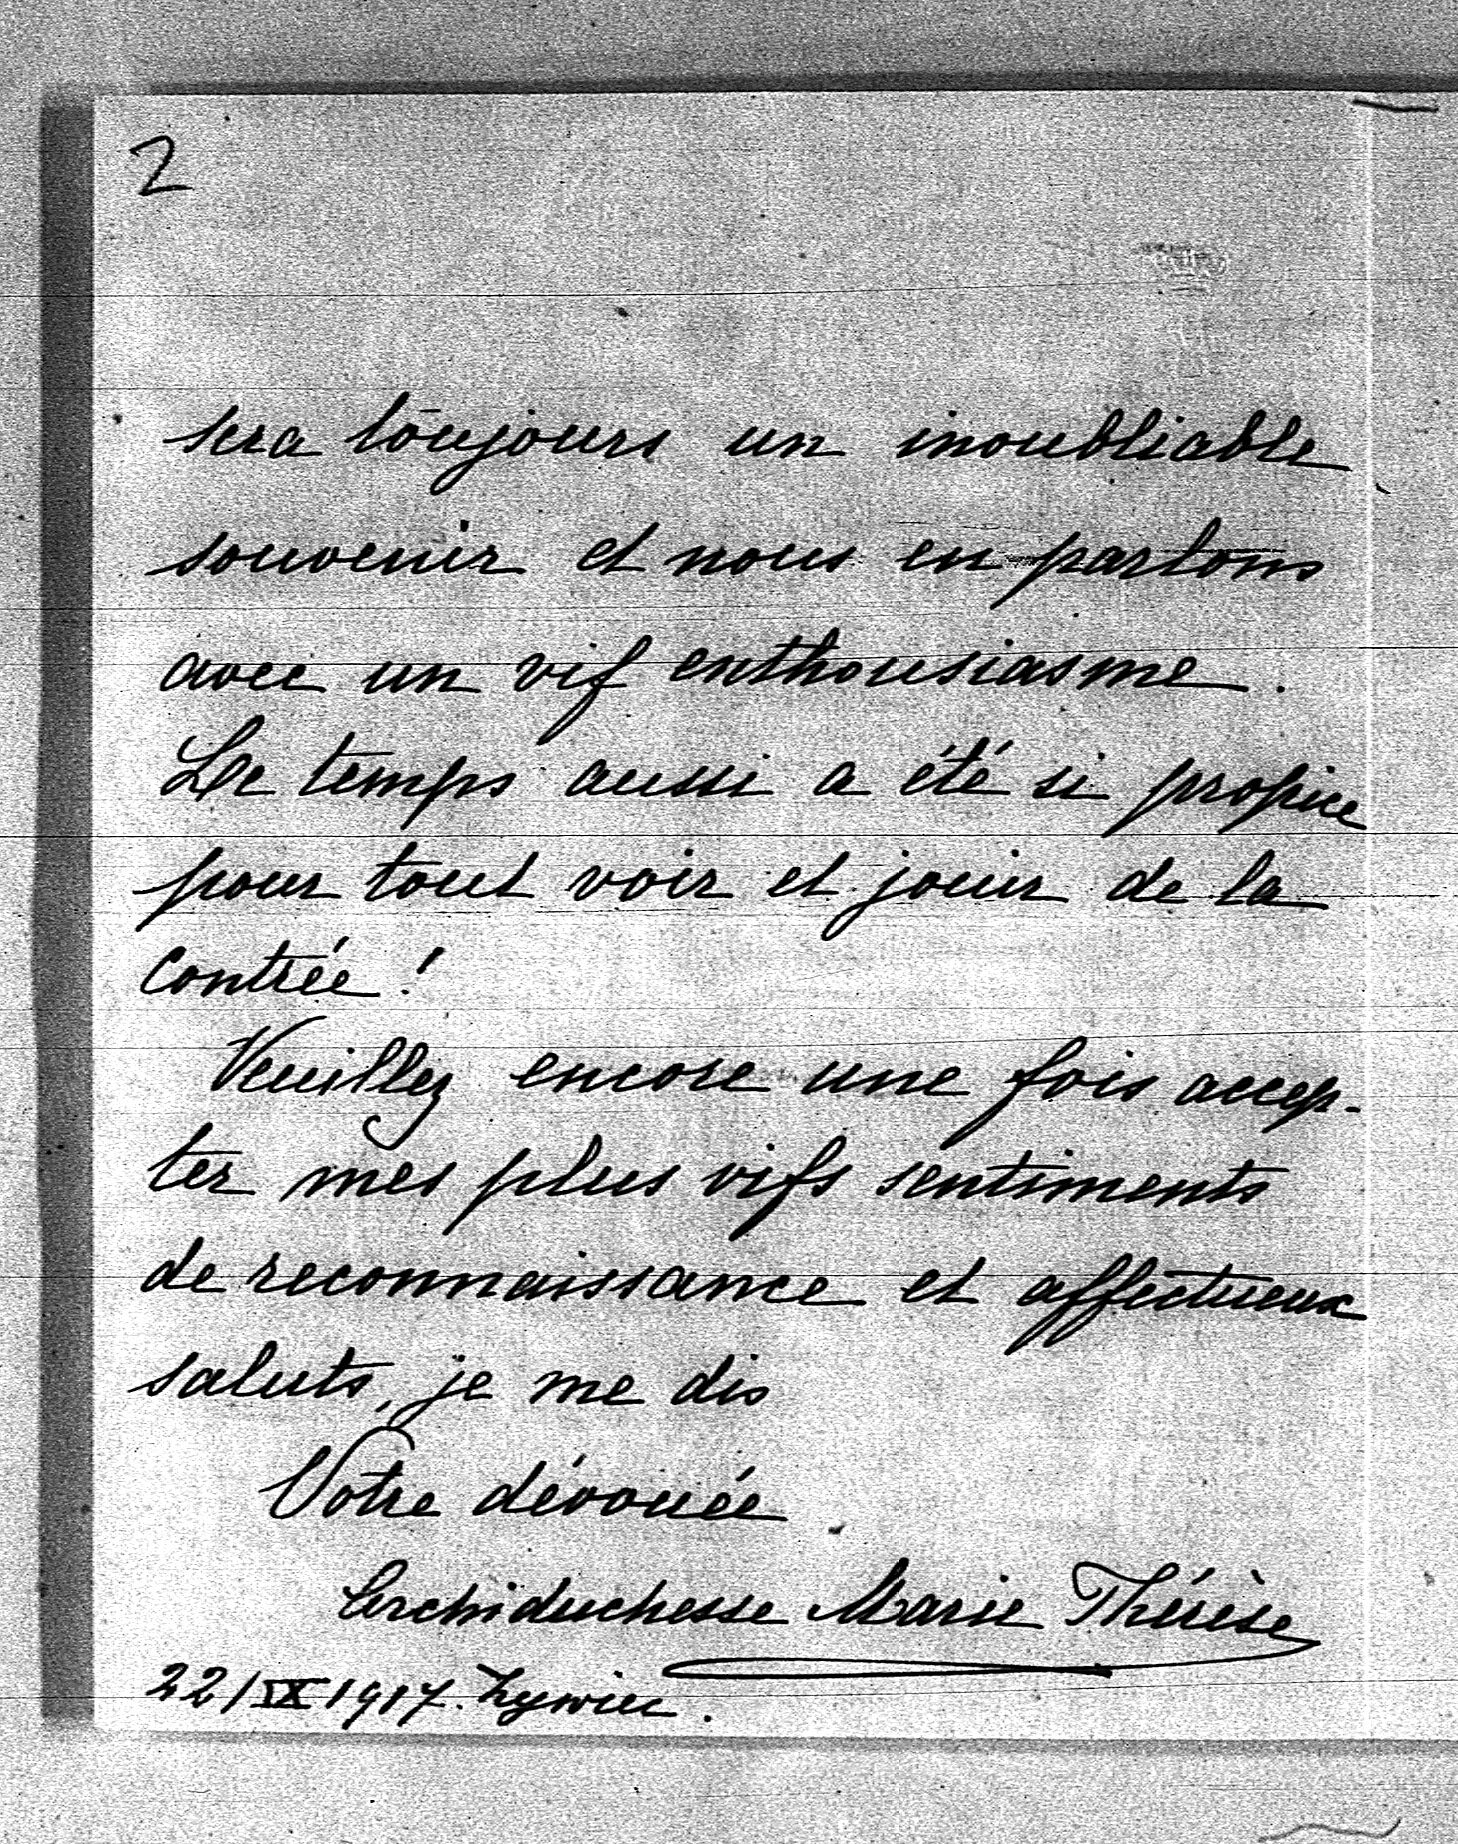 2
sera toujours un inoubliable
souvenir et nous en parlons
avec un vif enthousiasme.
Le temps aussi a été si propice
pour tout voir et jouir de la
contrée!
Veuillez encore une fois accep-
ter mes plus vifs sentiments
de reconnaissance et affectueux
saluts, je me dis
Votre dévouée
Archiduchesse Marie Thérèse
22/IX 1917. Zywiec.